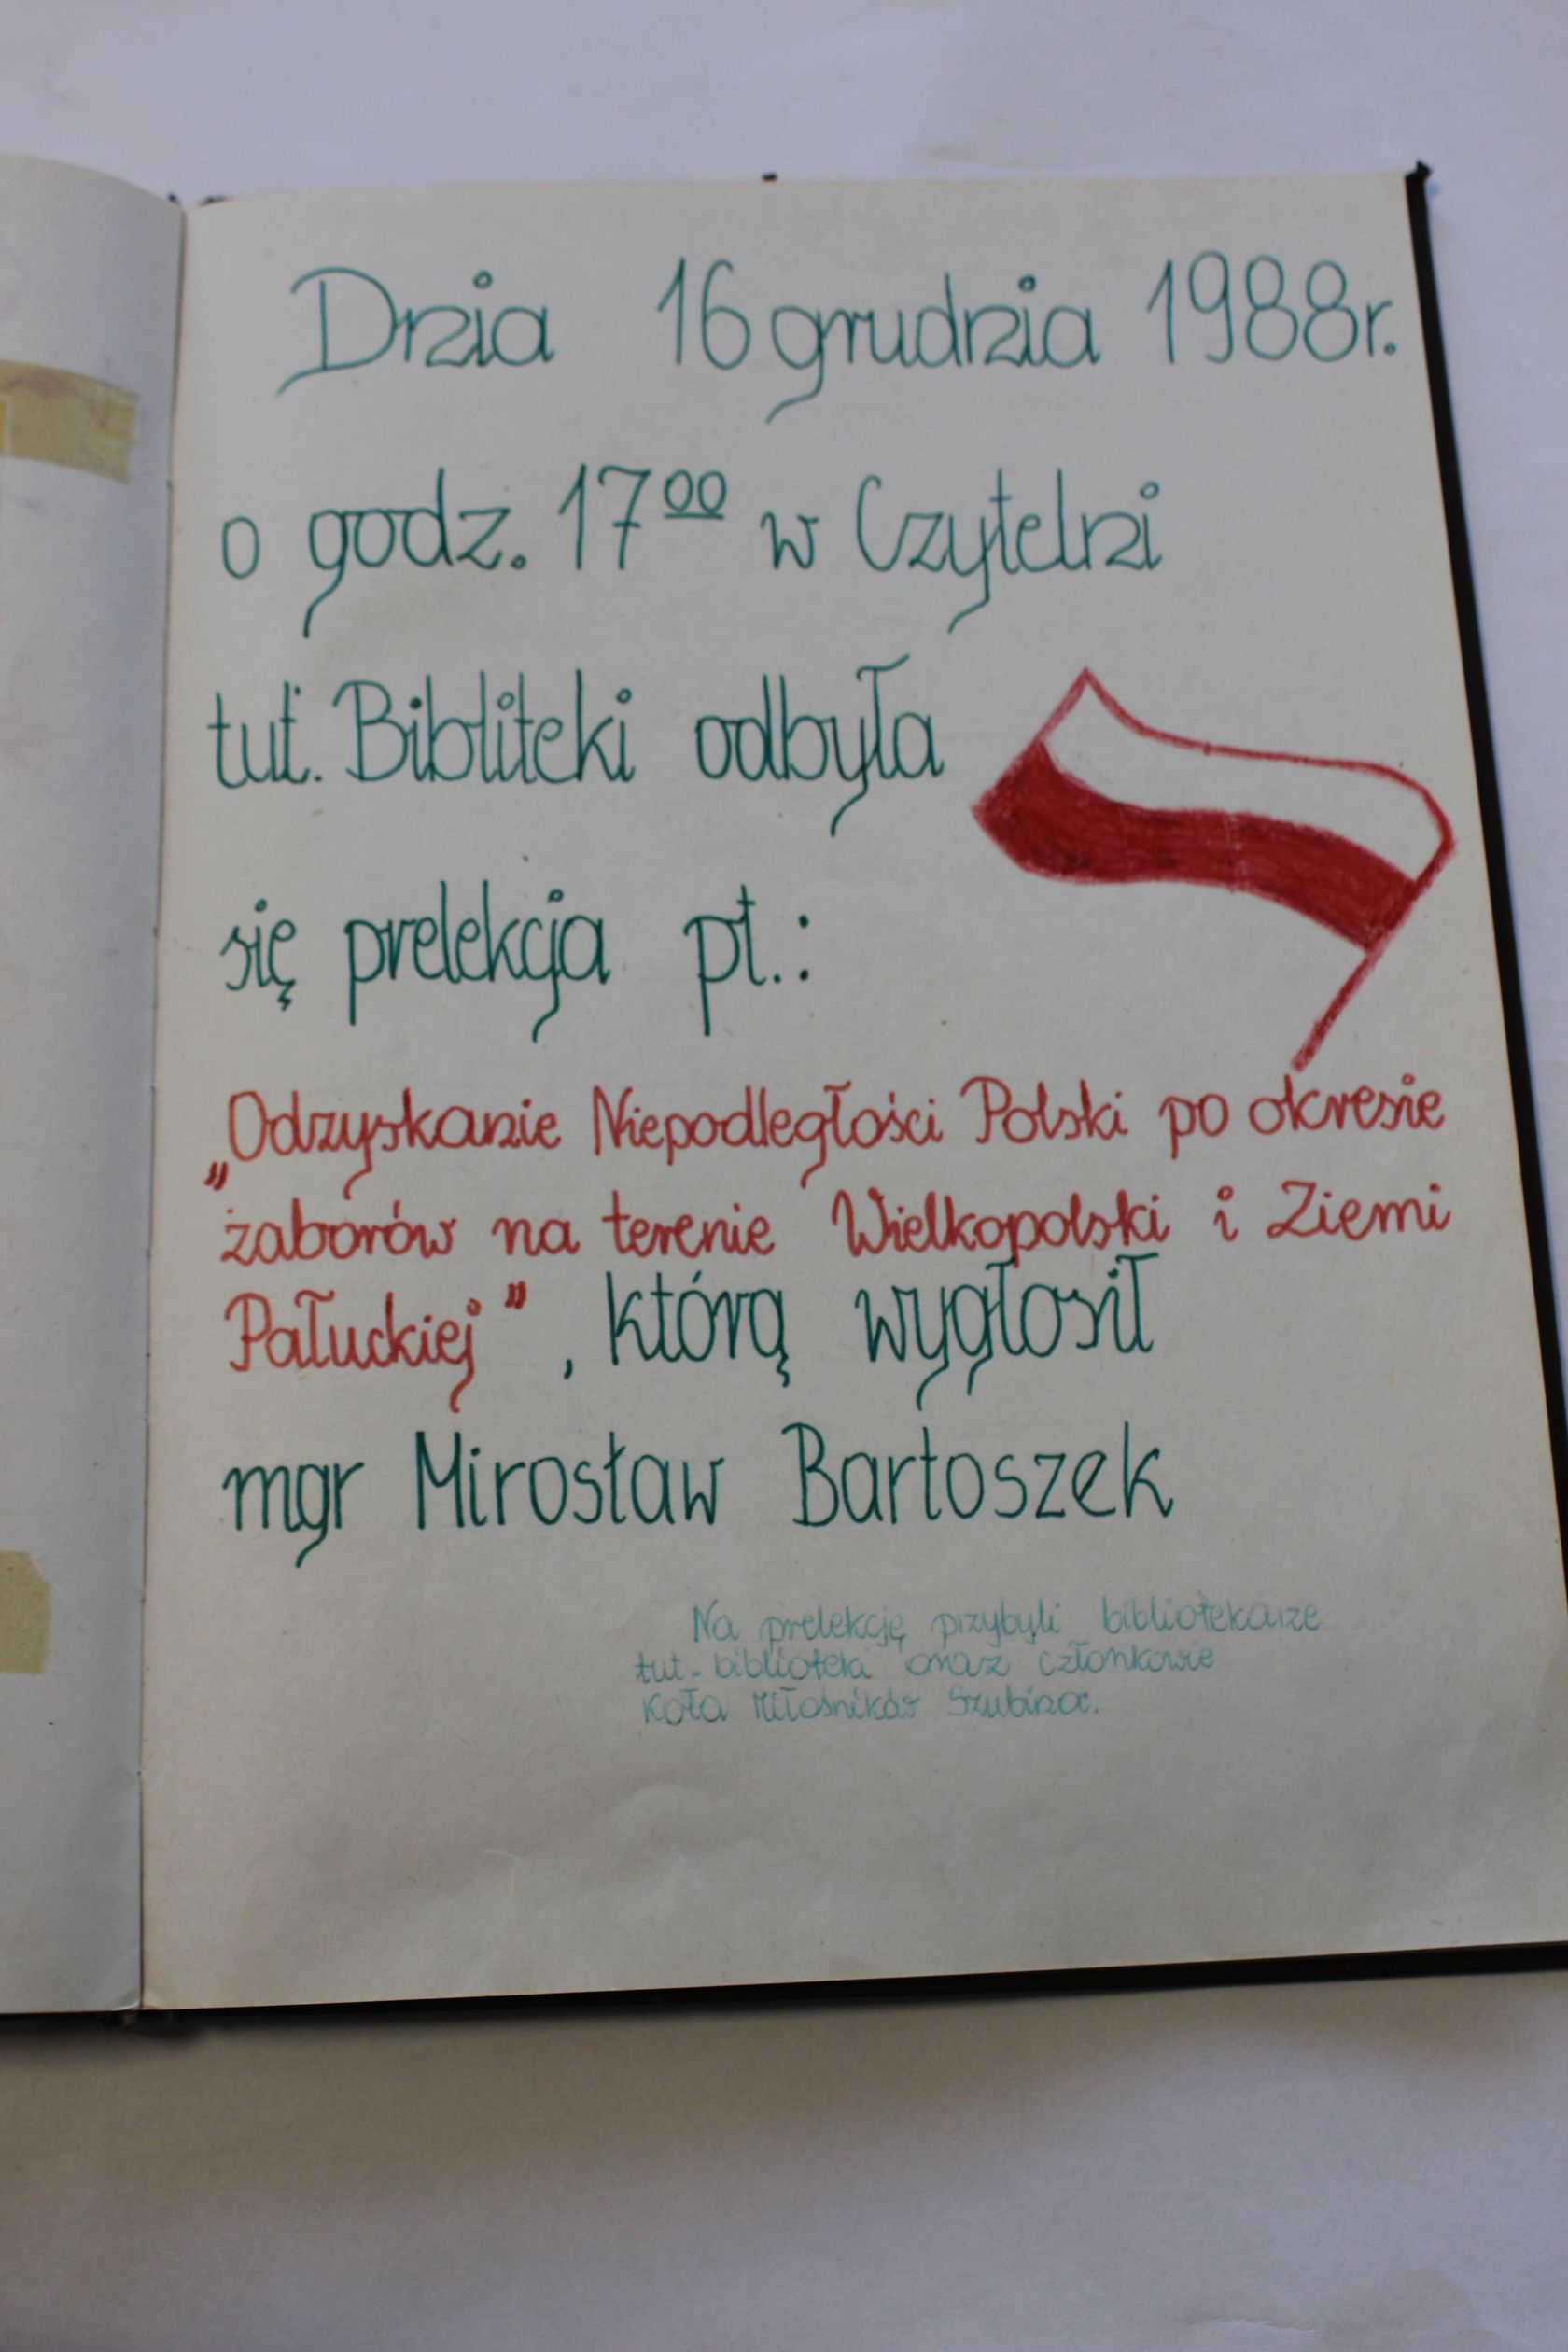 Dnia 16 grudnia 1988r.
o godz. 17 00 w Czytelni
tut. Bibliteki odbyła
się prelekcja pt.:
„Odzyskanie Niepodległości Polski po okresie
zaborów na terenie Wielkopolski i Ziemi
Pałuckiej”, którą wygłosił
mgr Mirosław Bartoszek
Na prelekcję przybyli bibliotekarze
tut. biblioteki oraz członkowie
Koła Miłośników Szubina.